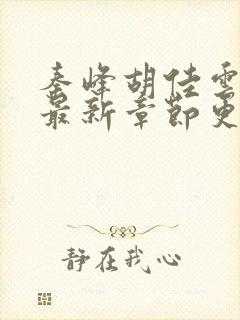 秦峰胡佳雲
最新章節更
静在我心